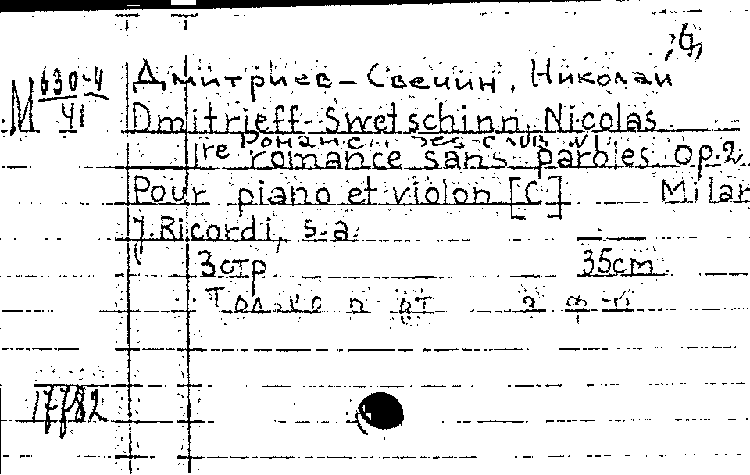 M 630-4
41
Дмитриев-Свечин, Николай
Dmitrieff-Swetschinn, Nicolas
Романсы без слов №1
1re romance sans paroles op.2
Pour piano et violon [C] Milan
J. Ricordi, s.a.
3 стр. 35cm
Только п
17782